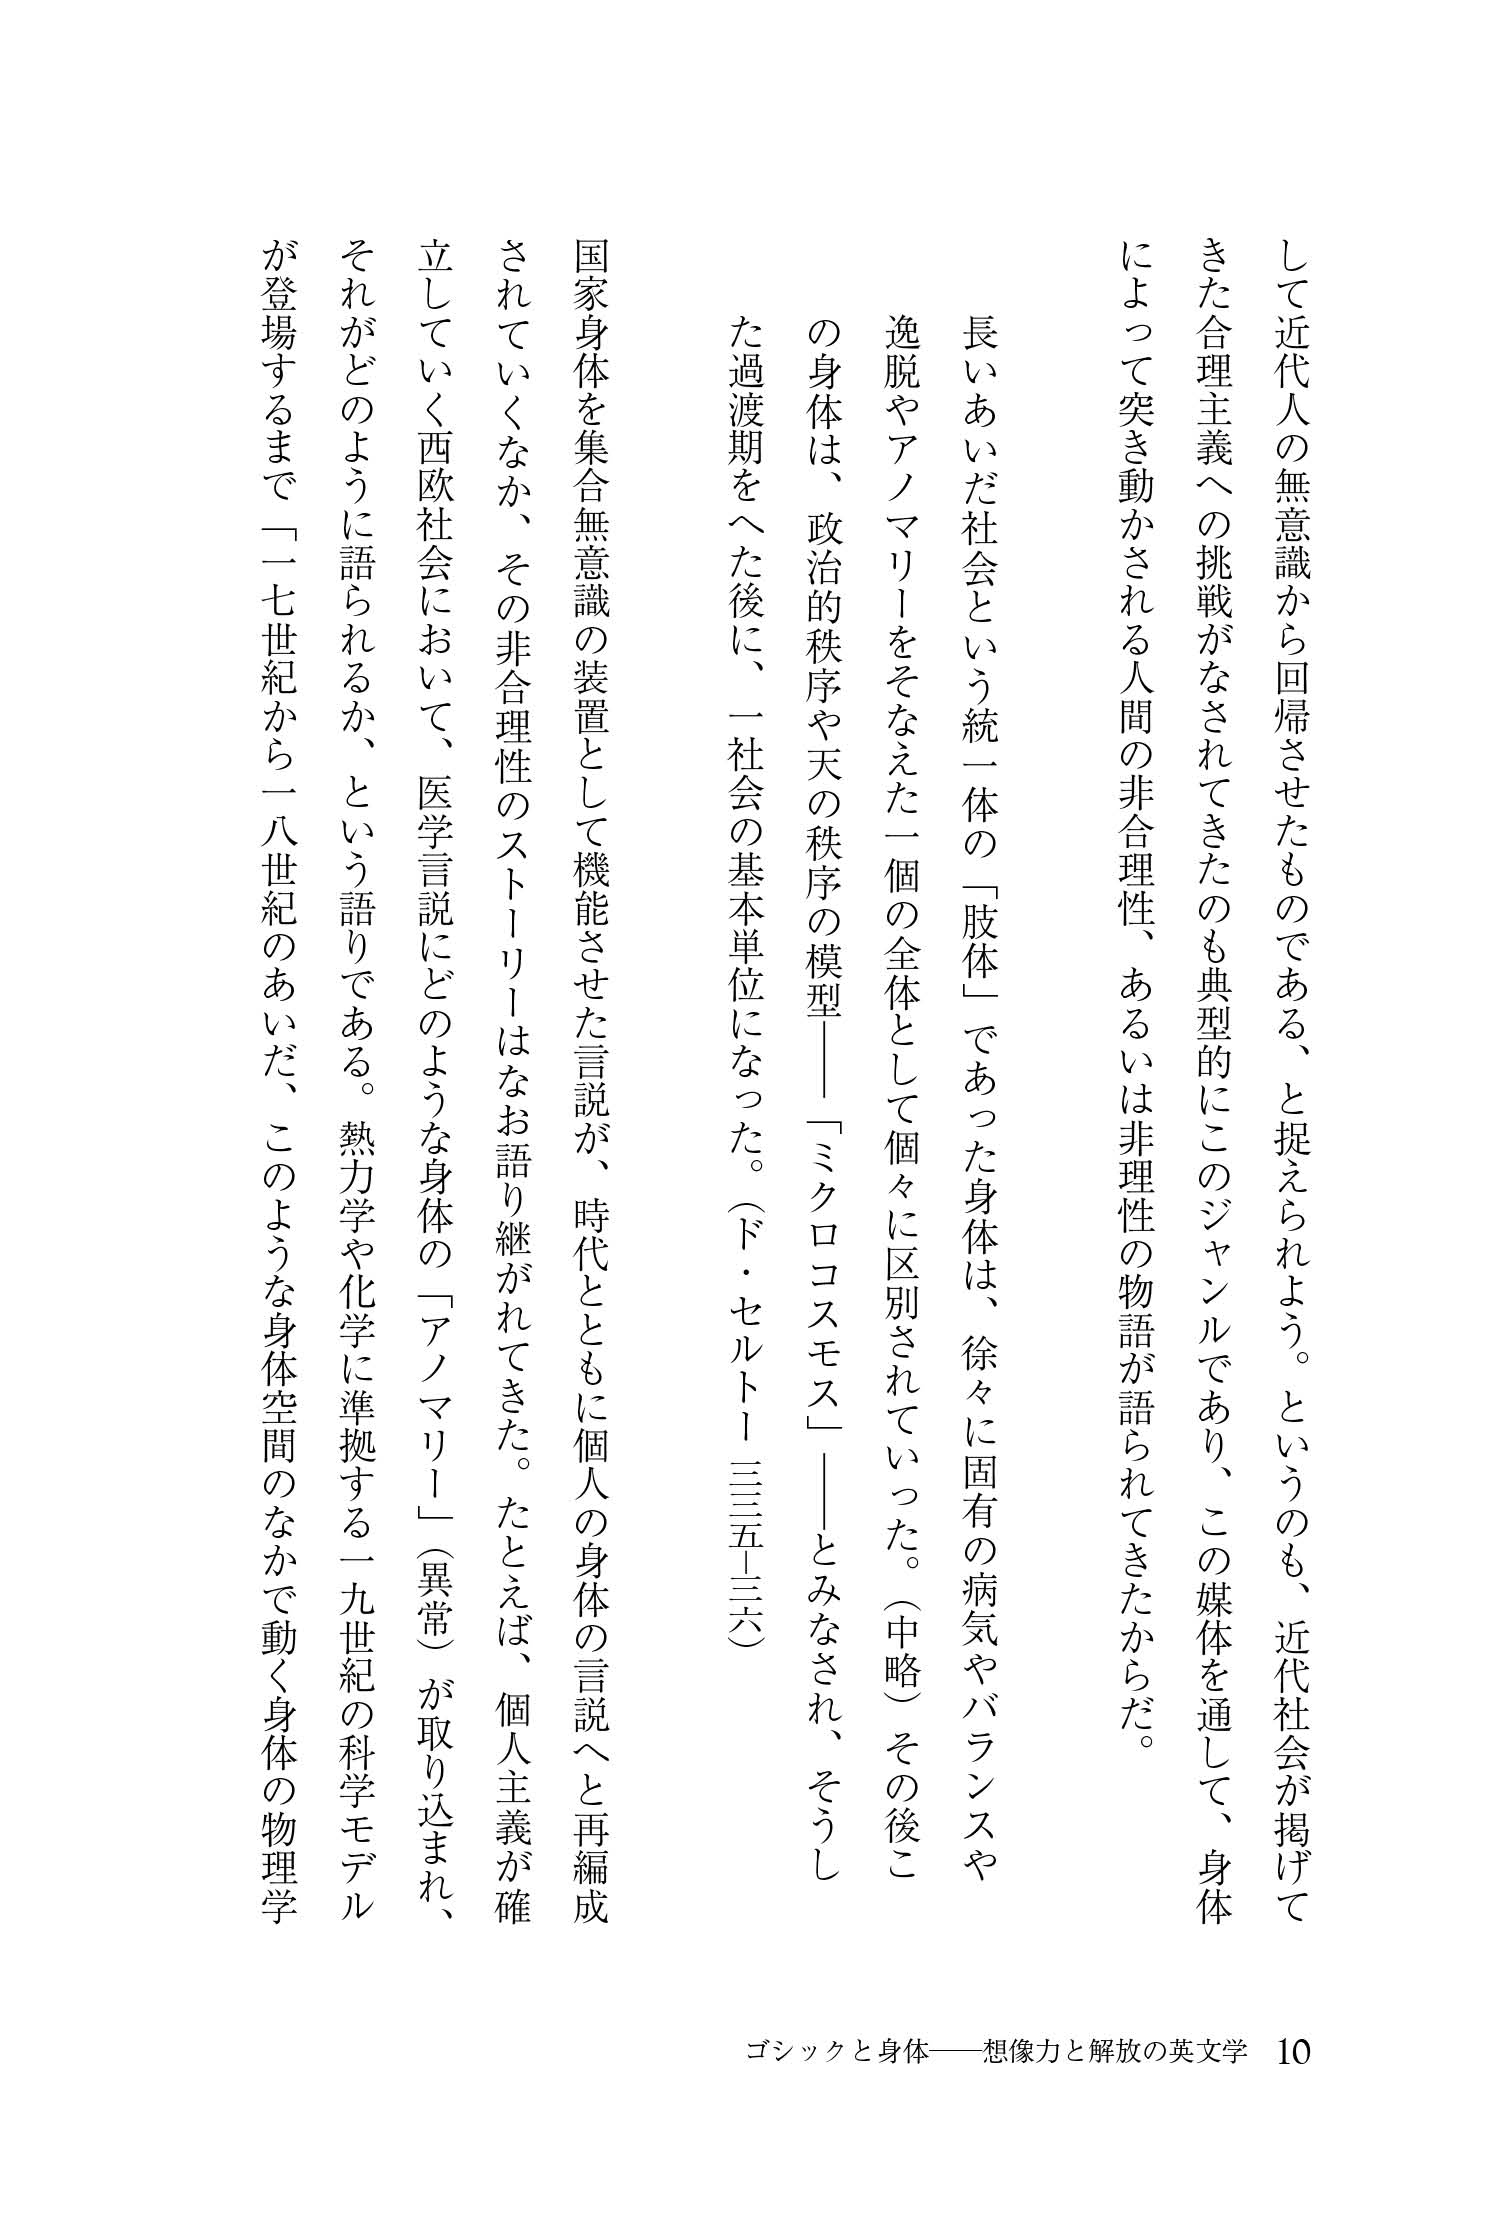 して近代人の無意識から回帰させたものである、と捉えられよう。というのも、近代社会が掲げて
きた合理主義への挑戦がなされてきたのも典型的にこのジャンルであり、この媒体を通して、身体
によって突き動かされる人間の非合理性、あるいは非理性の物語が語られてきたからだ。
長いあいだ社会という統一体の「肢体」であった身体は、徐々に固有の病気やバランスや
逸脱やアノマリーをそなえた一個の全体として個々に区別されていった。（中略）その後こ
の身体は、政治的秩序や天の秩序の模型――「ミクロコスモス」――とみなされ、そうし
た過渡期をへた後に、一社会の基本単位になった。（ド・セルトー 三三五–三六）
国家身体を集合無意識の装置として機能させた言説が、時代とともに個人の身体の言説へと再編成
されていくなか、その非合理性のストーリーはなお語り継がれてきた。たとえば、個人主義が確
立していく西欧社会において、医学言説にどのような身体の「アノマリー」（異常）が取り込まれ、
それがどのように語られるか、という語りである。熱力学や化学に準拠する一九世紀の科学モデル
が登場するまで「一七世紀から一八世紀のあいだ、このような身体空間のなかで動く身体の物理学
ゴシックと身体――想像力と解放の英文学 10